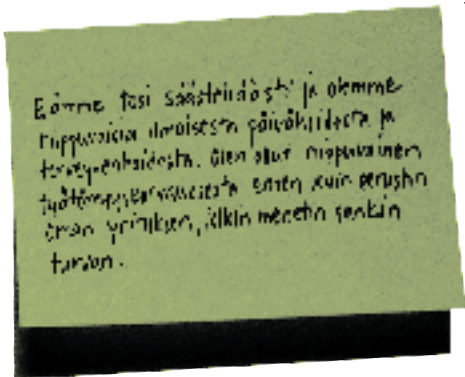 Elämme tosi säästeliäästi ja olemme
riippuvaisia ilmaisesta päivähoidosta ja
terveydenhoidosta. Olen ollut riippuvainen
työttömyyskorvauksesta ennen kuin perustin
oman yrityksen, jolloin menetin senkin
turvan.